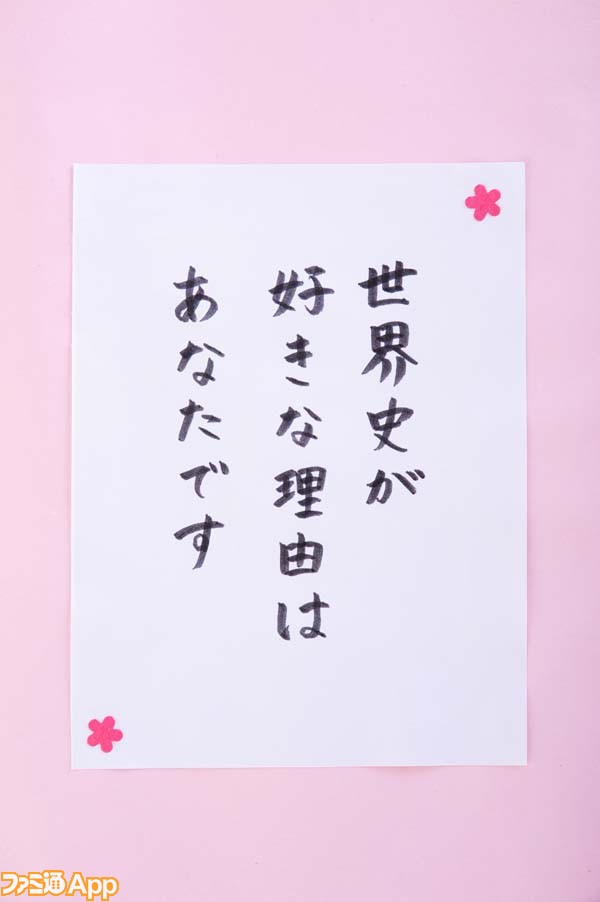 世界史が
好きな理由は
あなたです
ファミ通App